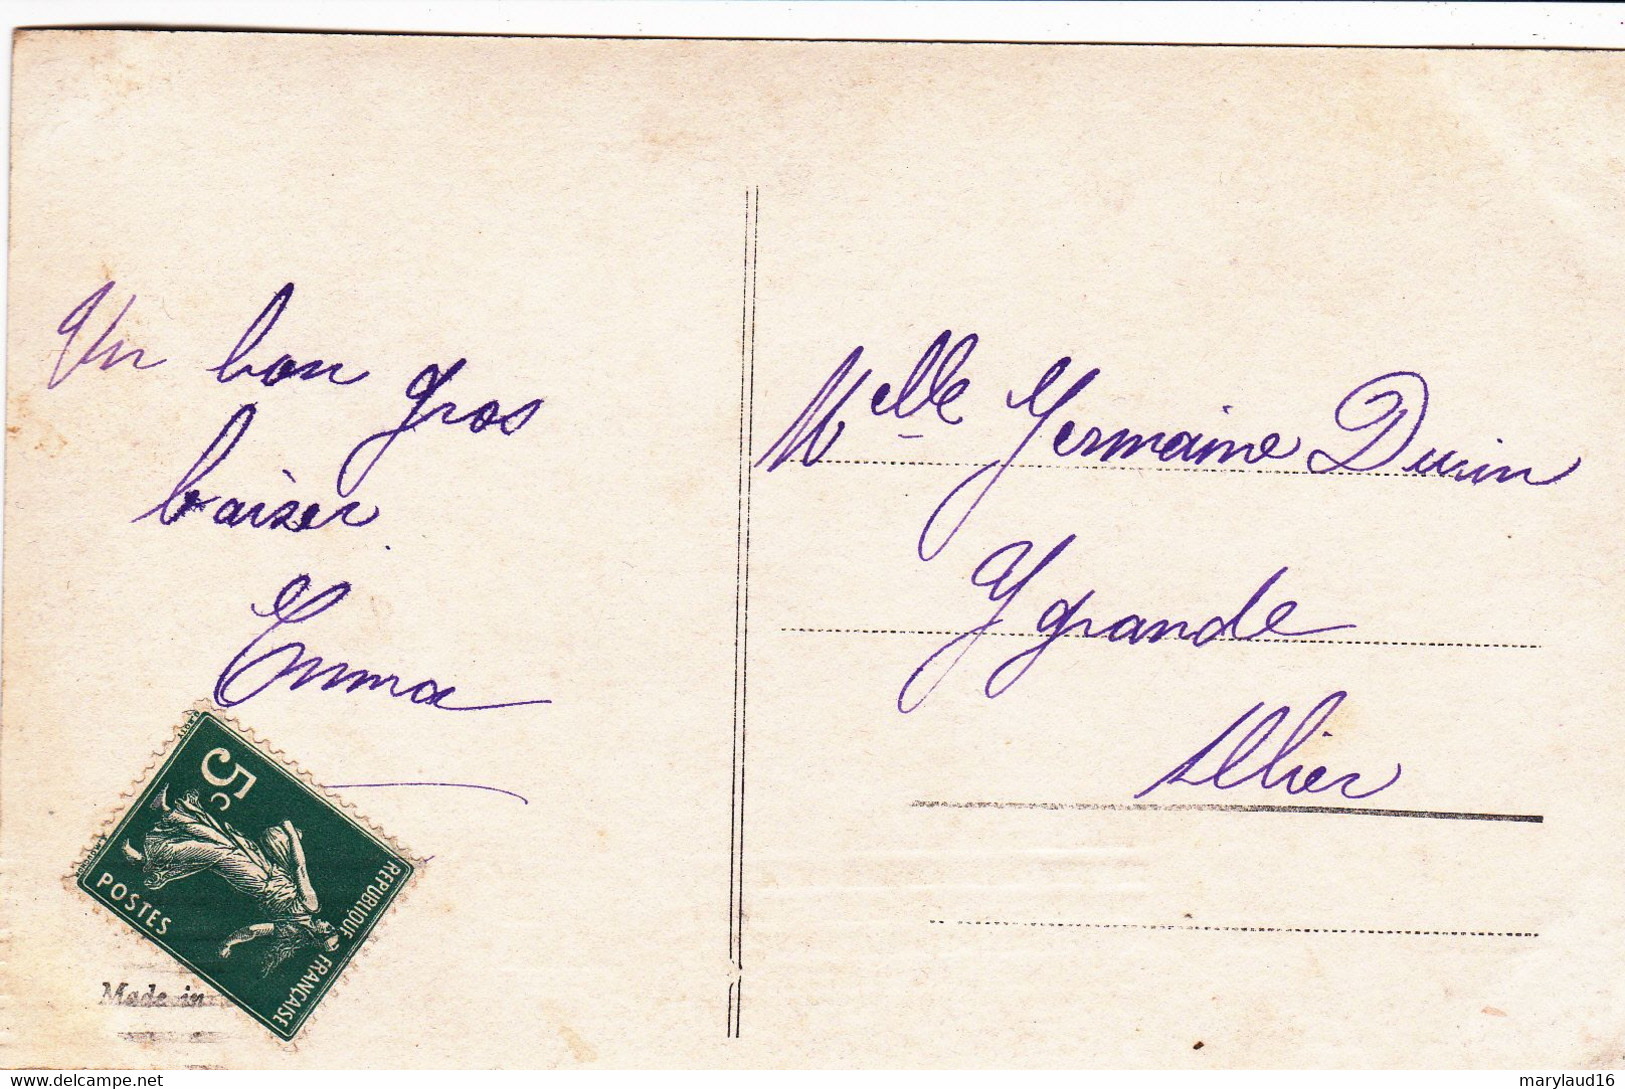 Un bon gros
baiser
Emma
Melle Germaine Durin
Ygrande
Allier
5c
POSTES
REPUBLIQUE FRANÇAISE
Made in
www.delcampe.net
marylaud16